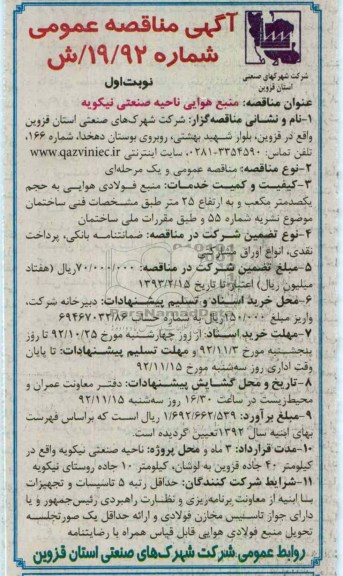 آگهی مناقصه عمومی
شماره ۱۹/۹۲/ش
نوبت اول
شرکت شهرکهای صنعتی
استان قزوین
عنوان مناقصه: منبع هوایی ناحیه صنعتی نیکویه
۱-نام و نشانی مناقصه‌گزار: شرکت شهرک‌های صنعتی استان قزوین
واقع در قزوین، بلوار شهید بهشتی، روبروی بوستان دهخدا، شماره ۱۶۶،
تلفن تماس: ۳۳۵۴۵۹۰-۰۲۸۱، سایت اینترنتی www.qazviniec.ir
۲-نوع مناقصه: مناقصه عمومی و یک مرحله‌ای
۳-کیفیت و کمیت خدمات: منبع فولادی هوایی به حجم
یکصدمتر مکعب و به ارتفاع ۲۵ متر طبق مشخصات فنی ساختمان
موضوع نشریه شماره ۵۵ و طبق مقررات ملی ساختمان
۴-نوع تضمین شرکت در مناقصه: ضمانتنامه بانکی، پرداخت
نقدی، انواع اوراق
۵-مبلغ تضمین شرکت در مناقصه: ۷۰/۰۰۰/۰۰۰ ریال (هفتاد
میلیون ریال) اعتبار تا تاریخ ۱۳۹۳/۲/۱۵
۶-محل خرید اسناد و تسلیم پیشنهادات: دبیرخانه شرکت،
واریز مبلغ ۲۵۰/۰۰۰ ریال به شماره حساب ۶۹۴۶۷۰۳۲/۸۶
۷-مهلت خرید اسناد: از روز چهارشنبه مورخ ۹۲/۱۰/۲۵ تا روز
پنجشنبه مورخ ۹۲/۱۱/۳ و مهلت تسلیم پیشنهادات: تا پایان
وقت اداری روز سه‌شنبه مورخ ۹۲/۱۱/۱۵
۸-تاریخ و محل گشایش پیشنهادات: دفتر معاونت عمران و
محیط‌زیست در ساعت ۱۶/۳۰ روز سه‌شنبه ۹۲/۱۱/۱۵
۹-مبلغ برآورد: ۱/۶۹۲/۶۶۲/۵۳۹ ریال است که براساس فهرست
بهای ابنیه سال ۱۳۹۲ تعیین گردیده است.
۱۰-مدت قرارداد: ۳ ماه و محل پروژه: ناحیه صنعتی نیکویه واقع در
کیلومتر ۴۰ جاده قزوین به لوشان، کیلومتر ۱۰ جاده روستای نیکویه
۱۱-شرایط شرکت کنندگان: حداقل رتبه ۵ تاسیسات و تجهیزات
یا ابنیه از معاونت برنامه‌ریزی و نظارت راهبردی رئیس‌جمهور و یا
دارای جواز تاسیس مخازن فولادی و ارائه حداقل یک صورتجلسه
تحویل منبع فولادی هوایی قابل قیاس همراه با رضایتنامه
روابط عمومی شرکت شهرک‌های صنعتی استان قزوین